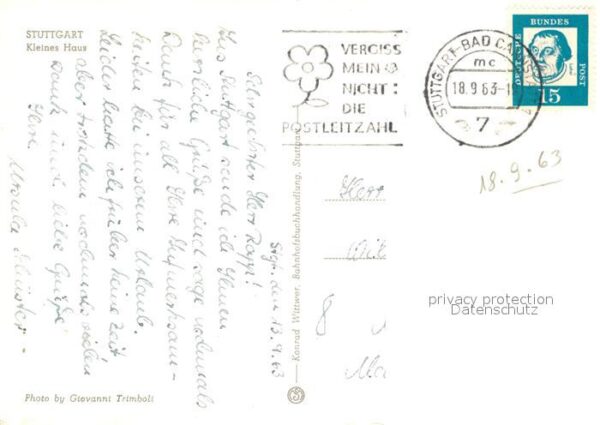 STUTTGART
Kleines Haus
Stgt. den 13.9.63
Sehr geehrter Herr Rapp!
Aus Stuttgart sende ich Ihnen
herzliche Grüße und sage nochmals
Dank für all Ihre Aufmerksam-
keiten bei unserem Urlaub.
Leider hatte ich früher keine Zeit
aber trotzdem nochmals vielen
Dank und liebe Grüße
Ihre
Ursula
Photo by Giovanni Trimboli
Konrad Wittwer, Bahnhofsbuchhandlung, Stuttgart
VERGISS
MEIN
NICHT:
DIE
POSTLEITZAHL
STUTTGART-BAD
mc
18.9.63-1
7
DEUTSCHE
BUNDES
POST
15
18.9.63
Herr
8
privacy protection
Datenschutz